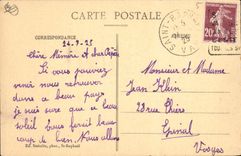 CARTE POSTALE
CORRESPONDANCE
24-9-25
Chère Mémère et cher Pépère
Si vous pouviez
venir nous retrouver
dans ce beau pays
je suis sûre que ce beau
soleil vous ferait beau
coup de bien. Nous allons
Monsieur et Madame
Jean Klein
23 rue Thiers
Epinal
Vosges